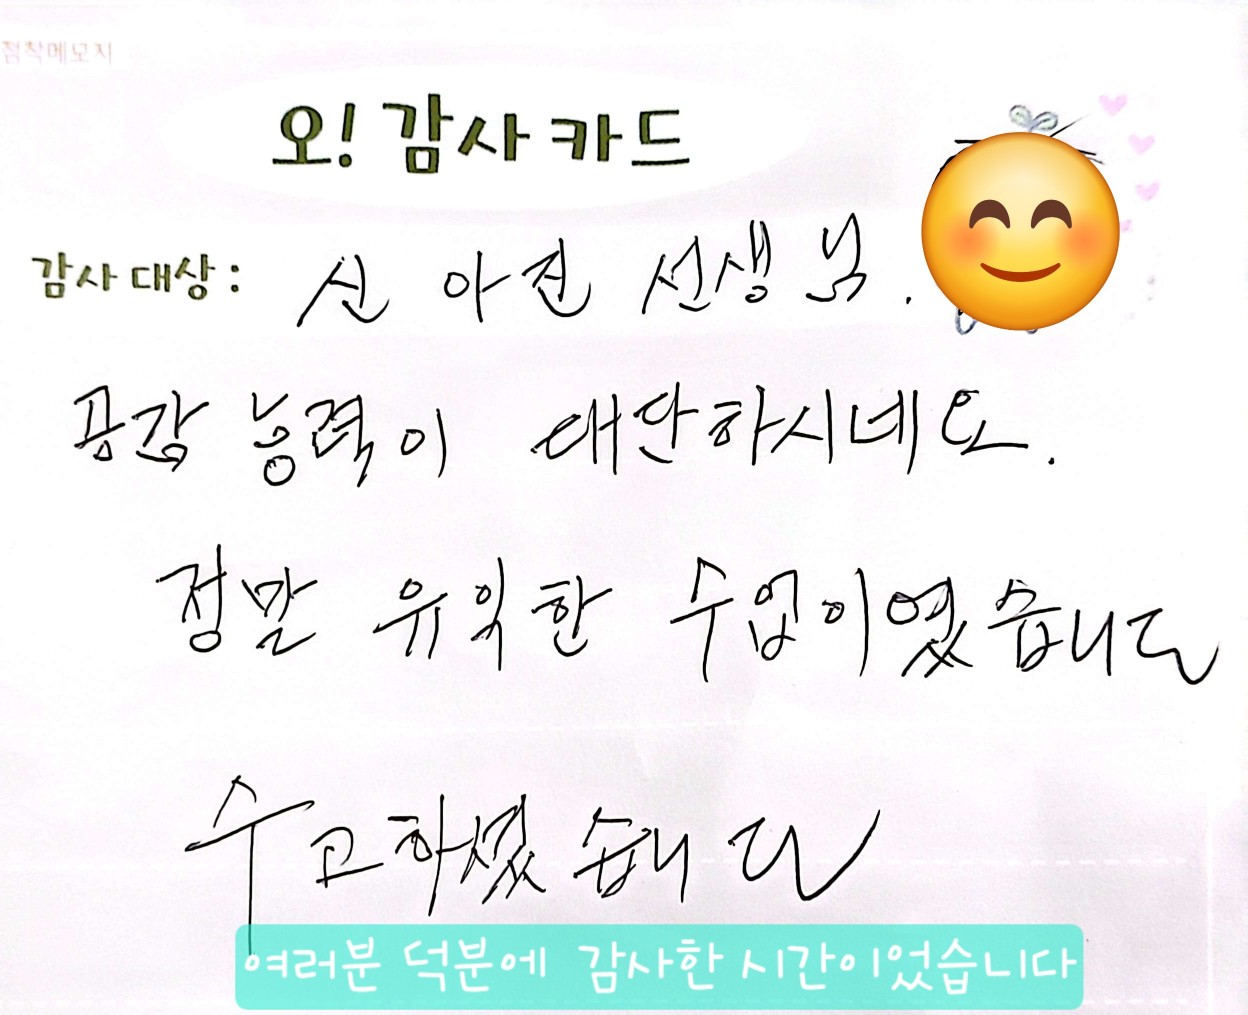 점착메모지
오! 감사카드
감사대상 : 신 아진 선생님.
공감 능력이 대단하시네요.
정말 유익한 수업이였습니다
수고하셨습니다
여러분 덕분에 감사한 시간이었습니다